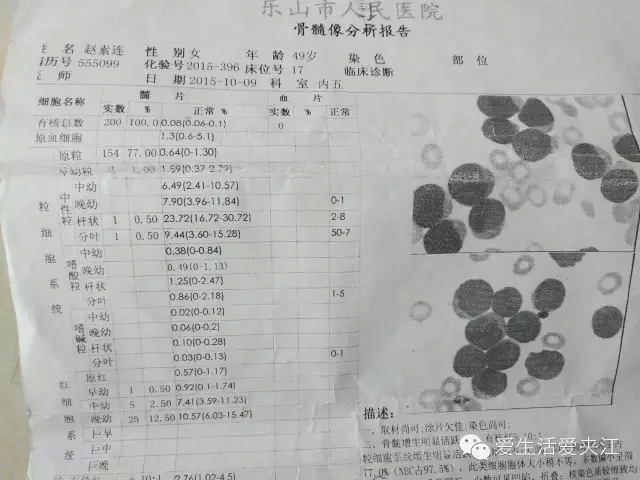 乐山市人民医院
骨髓像分析报告
姓 名 赵素连 性 别 女 年 龄 49岁 染 色 部 位
历号 555099 化验号 2015-396 床位号 17 临床诊断
师 日 期 2015-10-09 科 室 内五
细胞名称 髓 片 血 片
实数 % 正常% 实数 % 正常
有核总数 200 100.0 0.08(0.06-0.1) 0
原血细胞 1.3(0.6-5.1)
原粒 154 77.00 0.64(0-1.30)
早幼粒 2 1.00 1.59(0.37-2.79)
中幼 6.49(2.41-10.57)
粒 中性 晚幼 7.90(3.96-11.84) 0-1
粒 杆状 1 0.50 23.72(16.72-30.72) 2-8
细 分叶 1 0.50 9.44(3.60-15.28) 50-7
胞 中幼 0.38(0-0.84)
嗜酸 晚幼 0.49(0-1.13)
系 粒 杆状 1.25(0-2.47)
分叶 0.86(0-2.18) 1-5
统 中幼 0.02(0-0.12)
嗜碱 晚幼 0.06(0-0.2)
粒 杆状 0.10(0-0.28)
分叶 0.03(0-0.13) 0-1
原红 0.57(0-1.17)
红 早幼 1 0.50 0.92(0.1-1.74)
细 中幼 5 2.50 7.41(3.59-11.23)
胞 晚幼 25 12.50 10.57(6.03-15.47)
系 巨早
统 巨中
巨晚
2.76(1.02-4.5)
描述:
一、取材尚可;涂片欠佳;染色尚可;
二、骨髓增生明显活跃
粒细胞系统增生明显活
77.0% (NEC占97.5%), 此类细胞胞体大小不等,
折叠; 核染色质较细致均
爱生活爱夹江